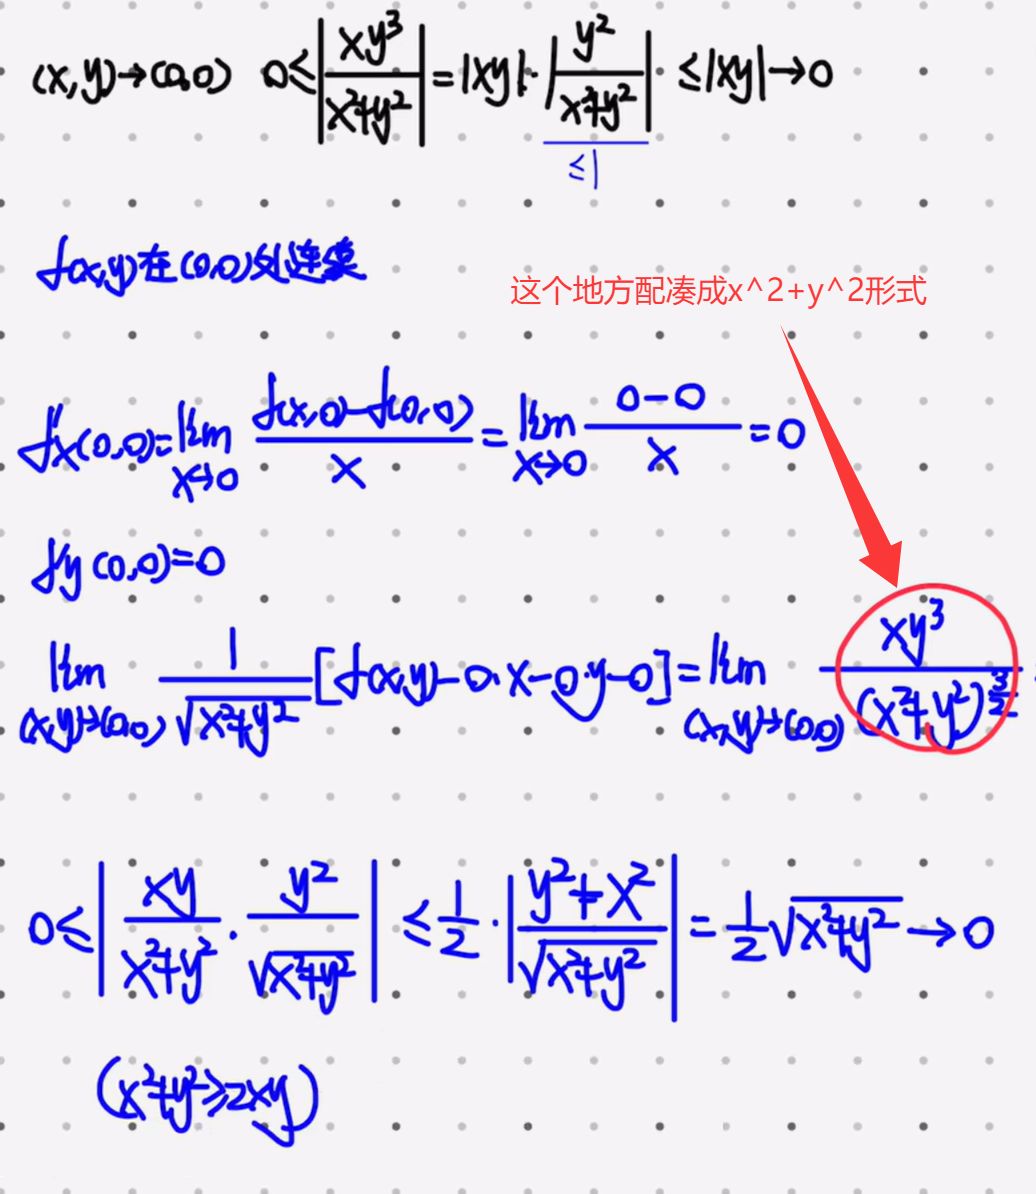 (x,y)→(0,0) 0≤|xy³/(x²+y²)|=|xy|·|y²/(x²+y²)|≤|xy|→0
≤1
f(x,y)在(0,0)处连续
这个地方配凑成x^2+y^2形式
f'x(0,0)=lim x→0 (f(x,0)-f(0,0))/x=lim x→0 (0-0)/x=0
f'y(0,0)=0
lim (x,y)→(0,0) 1/√(x²+y²) [f(x,y)-0·x-0·y-0]=lim (x,y)→(0,0) xy³/(x²+y²)^(3/2)
0≤|xy/(x²+y²)·y²/√(x²+y²)|≤1/2·|(y²+x²)/√(x²+y²)|=1/2√(x²+y²)→0
(x²+y²≥2xy)